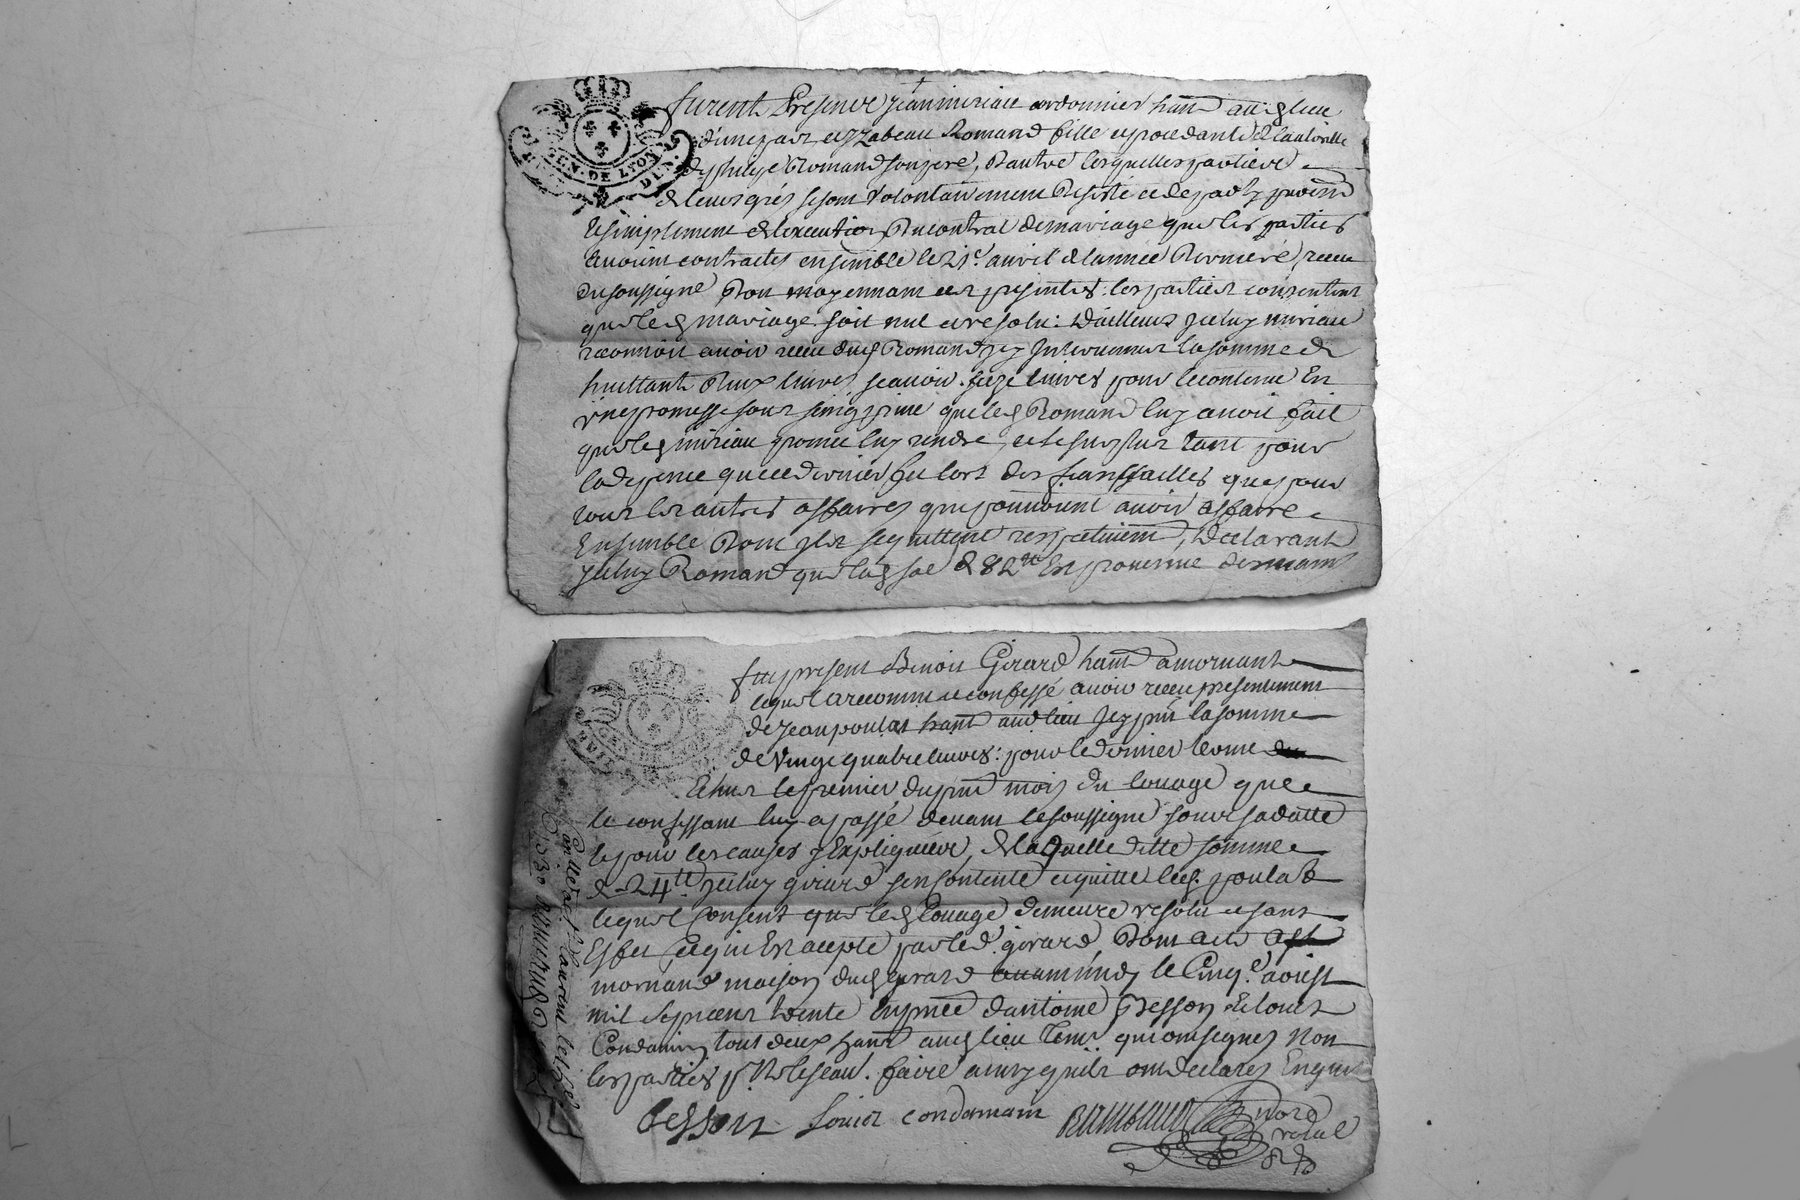 GEN. DE LYON
furent Presents Jean miriau cordonnier hant aud lieu
d'une part et Izabeau Romand fille et procedant de l'autorité
de philipe Romand son pere, d'autre lesquelles parties
de leurs grés se sont volontairement desisté et departy purem
et simplement de l'execution du contrat de mariage que les parties
avoient contractés ensemble le 21e avril de l'année derniere, receu
du soussigné dont moyennant ces presentes les parties consentent
que led mariage soit nul et resolu: d'ailleurs iceluy miriau
reconnoit avoir receu dud Romand icy Intervenant la somme de
huittante deux livres scavoir seize livres pour le contenu en
une promesse sous seing privé que led Romand luy avoit fait
que led miriau promet luy rendre, et le surplus tant pour
la depence que ce dernier fit lors des fiansailles que pour
tous les autres affaires que pouvoient avoir affaire
Ensemble dont ils se quittent respectivem, declarant
iceluy Romand que lad so de 82 tt est provenue des mains
fut present Benoit Girard hant a mornant
lequel a reconnu et confessé avoir receu presentement
de Jean poulat hant aud lieu Icy pnt la somme
de vingt quatre livres: pour le dernier terme
Echus le premier du pnt mois du louage que
le confessant luy a passé devant le soussigné sous sa datte
et pour les causes y Expliquées, de laquelle ditte somme
de 24 tt iceluy girard s'en contente et quitte led. poulat
lequel consent que led louage demeure resolu et sans
Effet, ce qui Est accepté par led girard, Dont acte
mornand maison dud girard le Cinq e aoust
mil sept cent trente En pnce d'antoine Besson et louis
Condamin tous deux hant aud lieu Tem. qui ont signés non
les parties pr ne le scavoir faire ainsy qu'ils ont declarez Enquis
besson Louis condamin